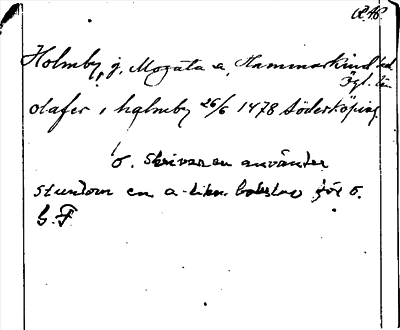 RAp.
Holmby, g. Mogata s, Hammarkind hd
Ögl. län
olafer i halmby 26/5 1478 Söderköping
o. Skrivaren använder
stundom en a-likn. bokstav för o.
G. F